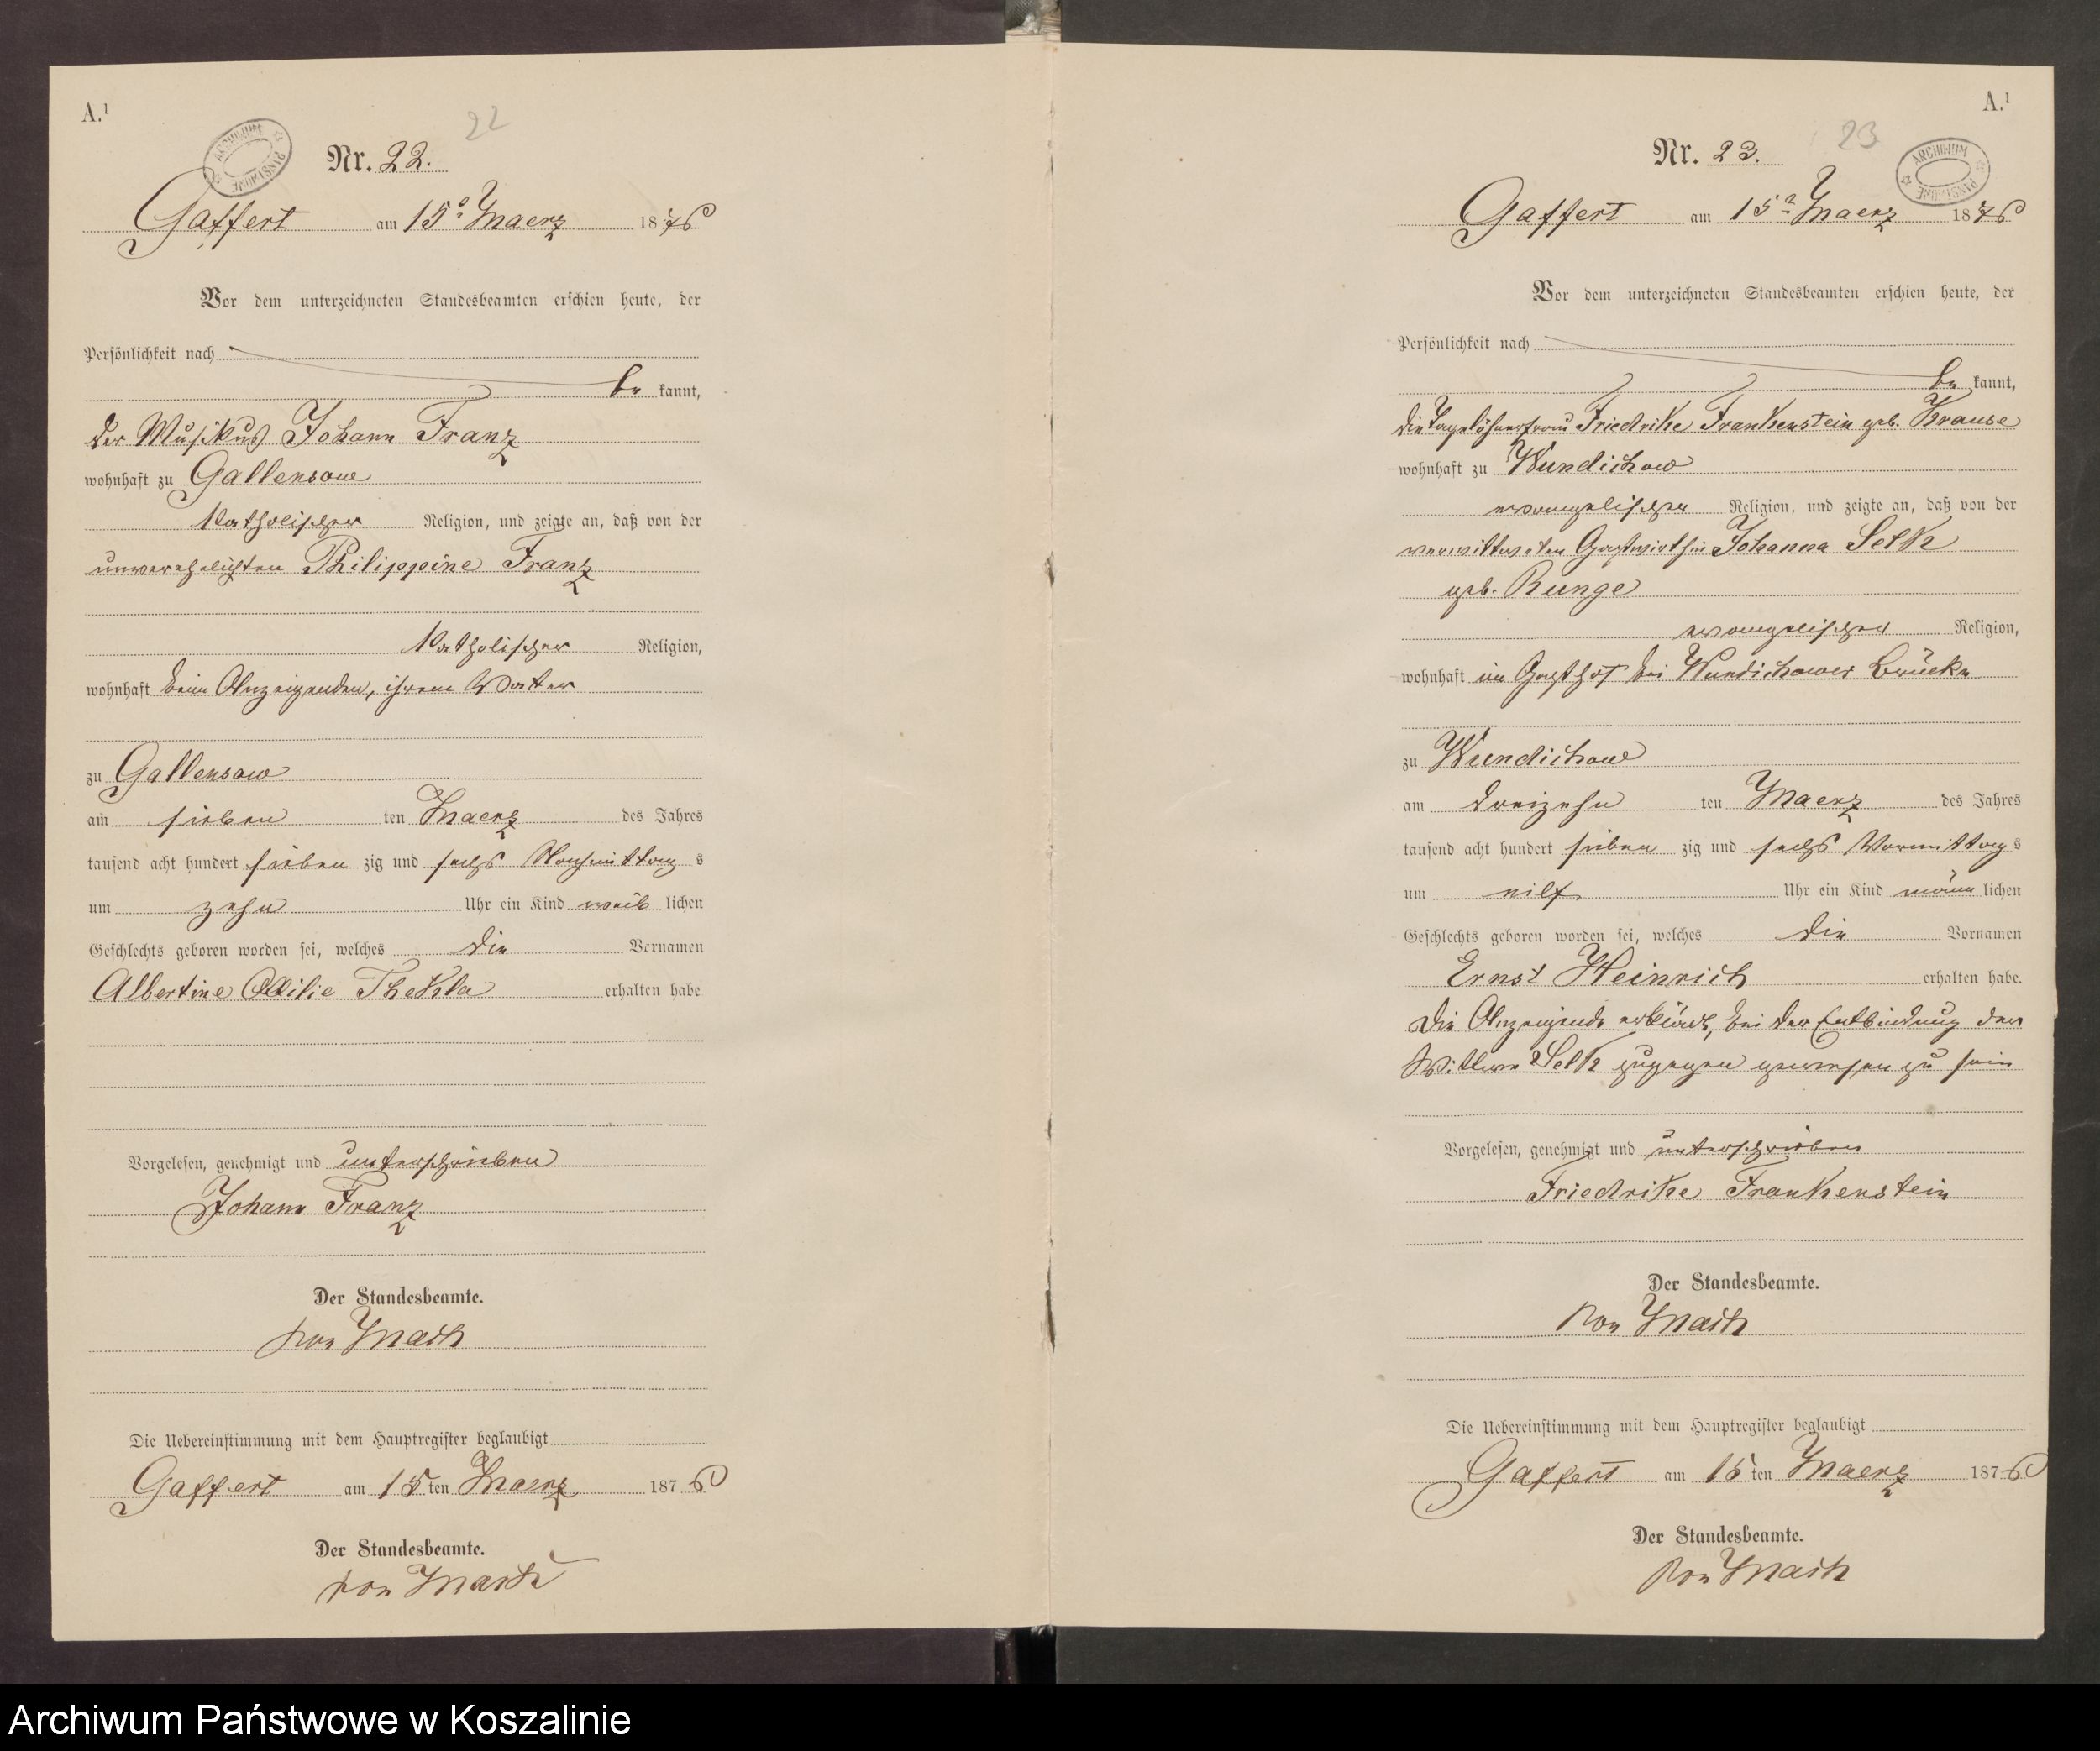 A.¹
ARCHIWUM PAŃSTWOWE
22
Nr. 22.
Gaffert am 15ᵗ Maerz 1876
Vor dem unterzeichneten Standesbeamten erschien heute, der
Persönlichkeit nach
be kannt,
der Musikus Johann Franz
wohnhaft zu Gallensow
katholischer Religion, und zeigte an, daß von der
unverehelichten Philippine Franz
katholischer Religion,
wohnhaft beim Anzeigenden, ihrem Vater
zu Gallensow
am sieben ten Maerz des Jahres
tausend acht hundert sieben zig und sechs Nachmittag s
um zehn Uhr ein Kind weib lichen
Geschlechts geboren worden sei, welches die Vornamen
Albertine Ottilie Thekla erhalten habe
Vorgelesen, genehmigt und unterschrieben
Johann Franz
Der Standesbeamte.
von Mach
Die Uebereinstimmung mit dem Hauptregister beglaubigt
Gaffert am 15 ten Maerz 1876
Der Standesbeamte.
von Mach
A.¹
23
ARCHIWUM PAŃSTWOWE
Nr. 23.
Gaffert am 15ᵗ Maerz 1876
Vor dem unterzeichneten Standesbeamten erschien heute, der
Persönlichkeit nach
be kannt,
die Tagelöhnerfrau Friedrike Frankenstein geb. Krause
wohnhaft zu Wundichow
evangelischer Religion, und zeigte an, daß von der
verwittweten Gastwirthin Johanna Selk
geb. Runge
evangelischer Religion,
wohnhaft im Gasthof bei Wundichower Brücke
zu Wundichow
am dreizehn ten Maerz des Jahres
tausend acht hundert sieben zig und sechs Vormittag s
um eilf Uhr ein Kind männ lichen
Geschlechts geboren worden sei, welches die Vornamen
Ernst Heinrich erhalten habe.
Die Anzeigende erklärt, bei der Entbindung der
Wittwe Selk zugegen gewesen zu sein
Vorgelesen, genehmigt und unterschrieben
Friedrike Frankenstein
Der Standesbeamte.
von Mach
Die Uebereinstimmung mit dem Hauptregister beglaubigt
Gaffert am 15 ten Maerz 1876
Der Standesbeamte.
von Mach
Archiwum Państwowe w Koszalinie